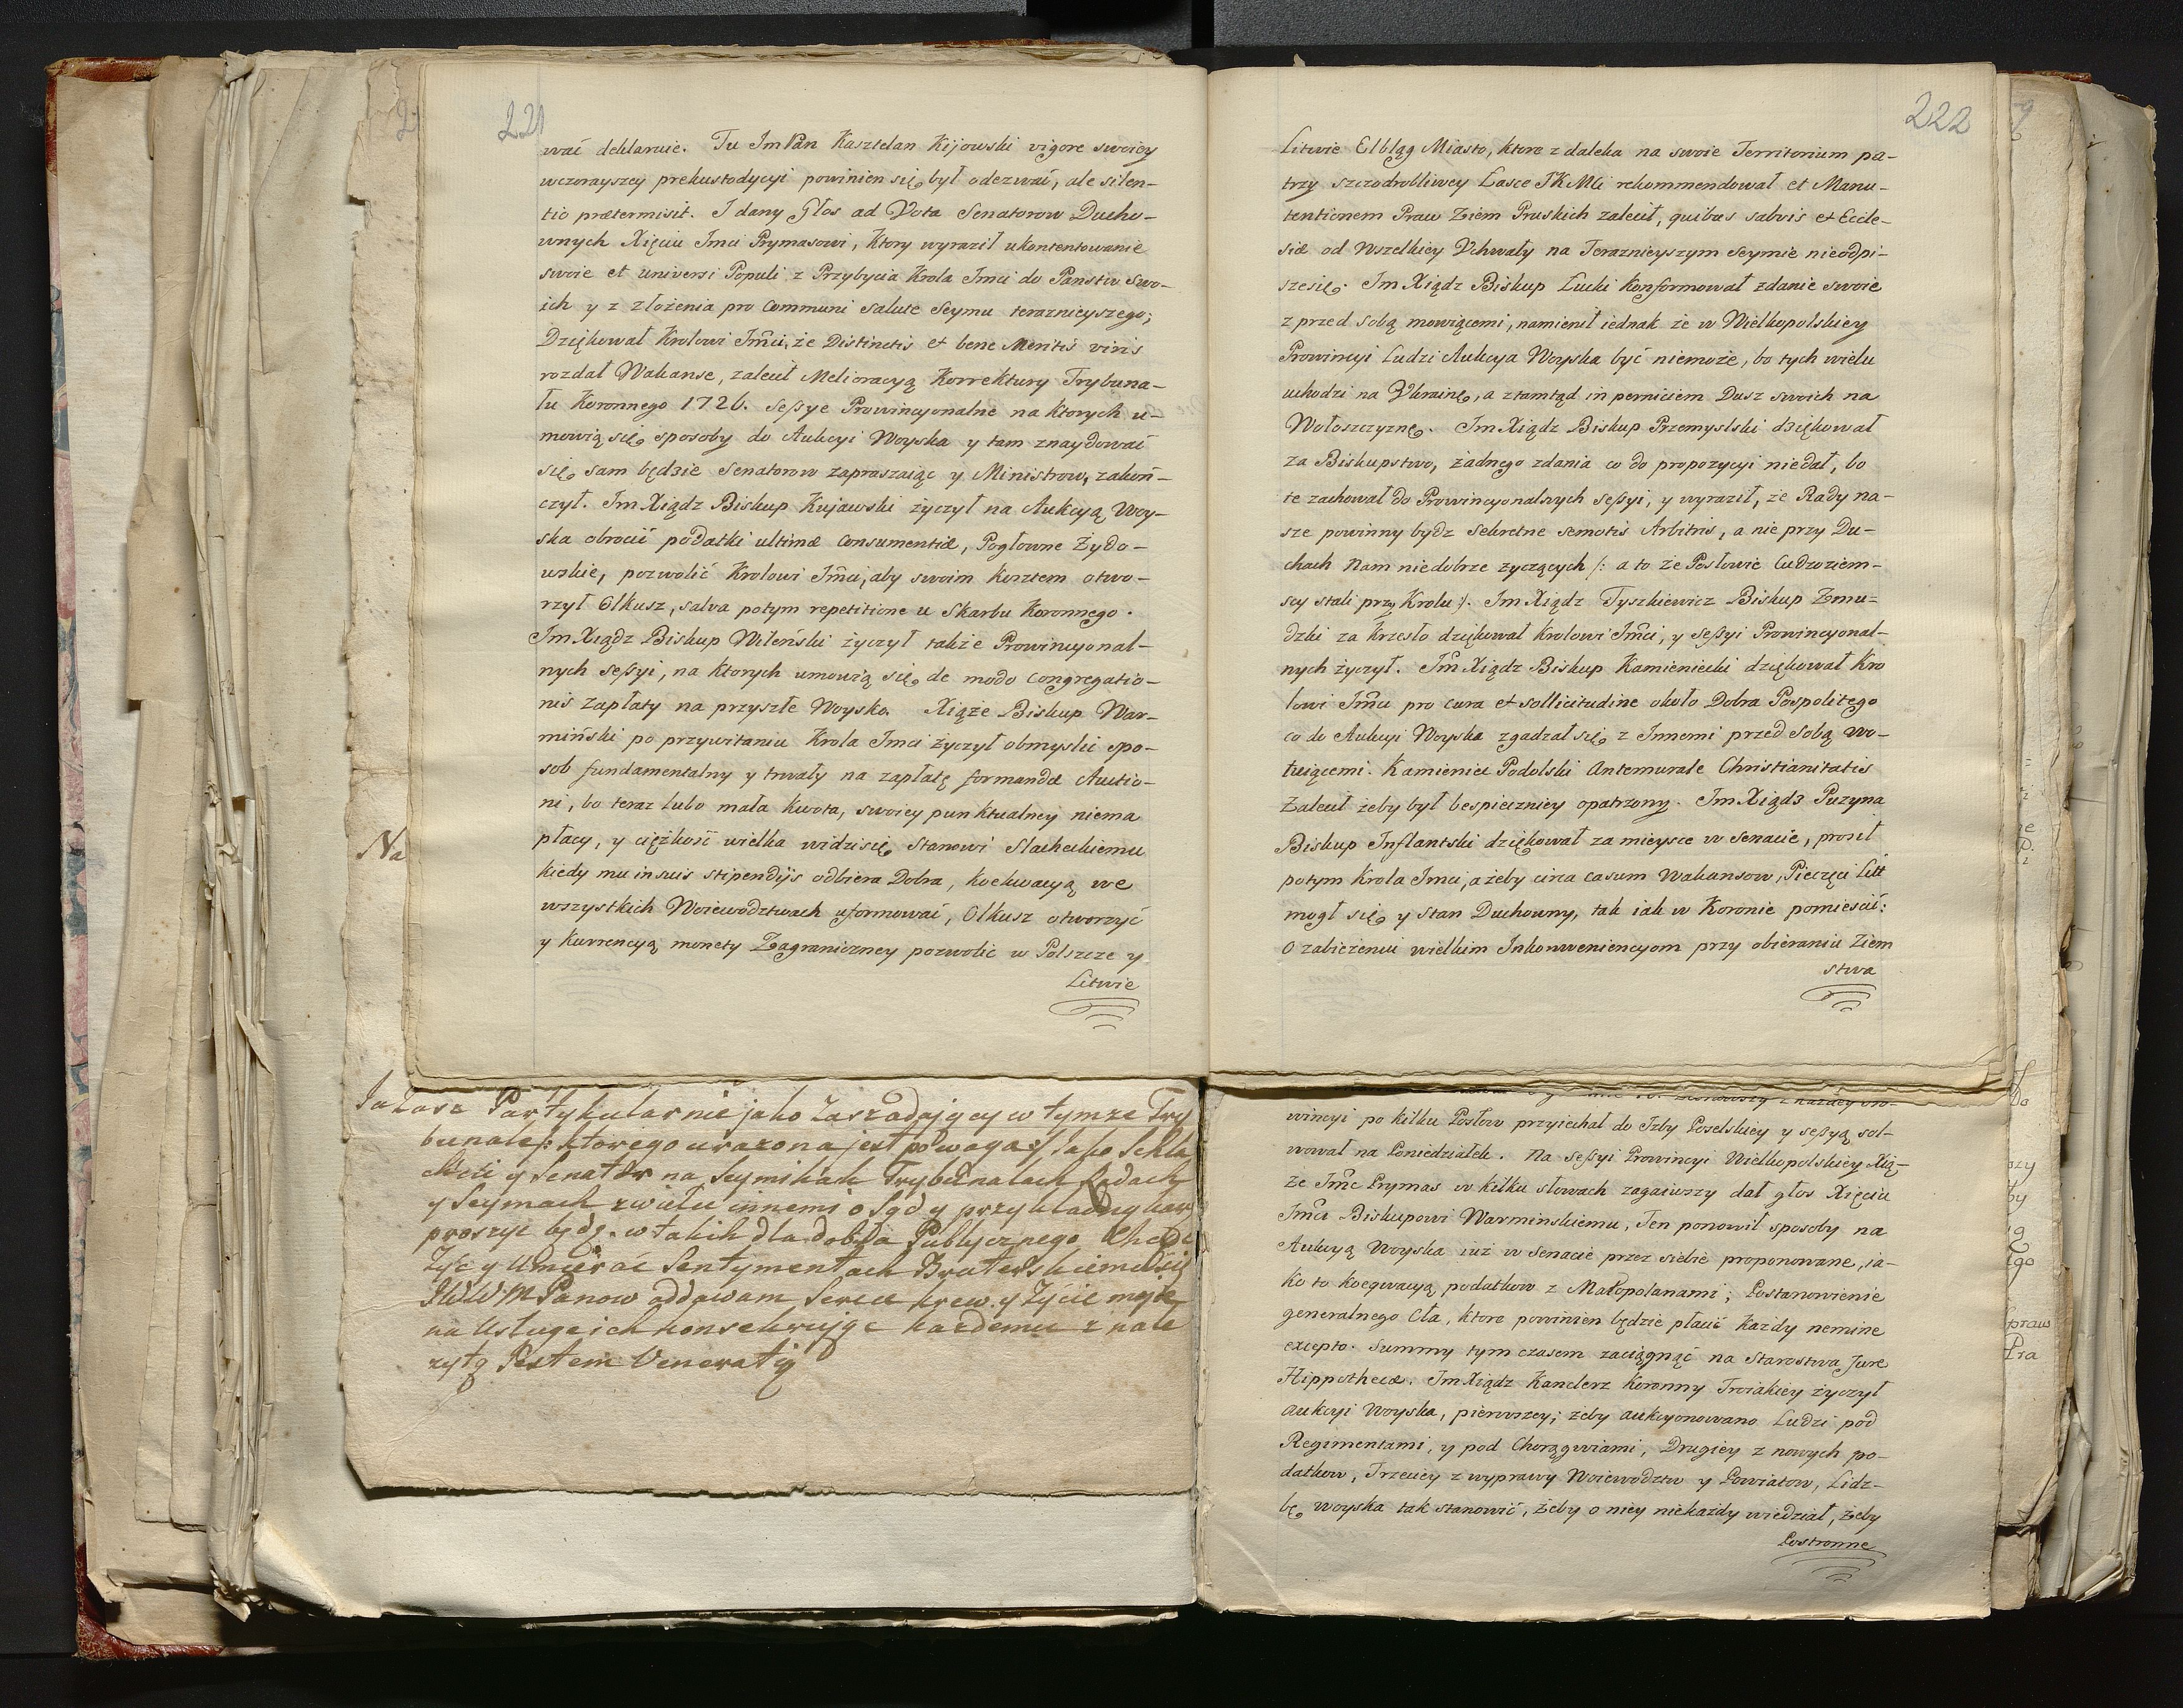 221
wać deklaruie. Tu ImPan Kasztelan Kijowski vigore swoiey
wczorayszey prekustodycyi powinien się był odezwać, ale silen-
tio prætermisit. I dany Głos ad Vota Senatorow Ducho-
wnych Xięciu Imci Prymasowi, ktory wyraził ukontentowanie
swoie et universi Populi z Przybycia Krola Imci do Panstw Swo-
ich y z złożenia pro communi salute Seymu teraznieyszego;
Dziękował Krolowi Imci, że Distinctis et bene Meritis viris
rozdał Wakanse, zalecił Melioracyą Korrektury Trybuna-
łu Koronnego 1726. Seßye Prowincyonalne na ktorych u-
mowią się sposoby do Aukcyi Woyska y tam znaydować
się sam będzie Senatorow zapraszaiąc y Ministrow, zakoń-
czył. Im Xiądz Biskup Kujawski życzył na Aukcyą Woy-
ska obrocić podatki ultimæ consumentiæ, Pogłowne Żydo-
wskie, pozwolić Krolowi Imci, aby swoim kosztem otwo-
rzył Olkusz, salva potym repetitione u Skarbu Koronnego.
Im Xiądz Biskup Wileński życzył także Prowincyonal-
nych Seßyi, na ktorych umowią się de modo congregatio-
nis zapłaty na przyszłe Woysko. Xiąże Biskup War-
miński po przywitaniu Krola Imci życzył obmyslić spo-
sob fundamentalny y trwały na zapłatę formandæ Auctio-
ni, bo teraz lubo mała kwota, swoiey punktualney niema
płacy, y ciężkość wielka widzisię Stanowi Slacheckiemu
kiedy mu in suis stipendijs odbiera Dobra, koekwacyą we
wszystkich Woiewodztwach uformować, Olkusz otworzyć
y Kurrencyą monety Zagraniczney pozwolić w Polszcze y
Litwie
Na
Inasze Partykularnie jako Zaszadający w tymże Try
bunale /: ktorego urazona jest powaga :/ Jako Schla
chcic y Senator na Seymikach Trybunalach Radach
y Seymach z wielu innemi o Sąd y przykładną karę
proszyc będę. w takich dla dobra Publycznego Chcąc
Żyć y Umierać Sentymentach Braterskiemu się
JWWMPanow oddawam Serce krew y Życie moje
na Usługe ich konsekrując każdemu z nale
żytą Jestem Veneratią
222
Litwie Elbląg Miasto, ktore z daleka na swoie Territorium pa-
trzy szczodrobliwey Łasce JKMci rekommendował et Manu-
tentionem Praw Ziem Pruskich zalecił, quibus salvis et Eccle-
siæ od Wszelkiey Uchwały na Teraznieyszym Seymie nieodpi-
szesię. Im Xiądz Biskup Łucki Konformował zdanie swoie
z przed Sobą mowiącemi, namienił iednak że w Wielkopolskiey
Prowincyi Ludzi Aukcya Woyska być niemoże, bo tych wielu
uchodzi na Ukrainę, a ztamtąd in perniciem Dusz swoich na
Wołoszczyznę. Im Xiądz Biskup Przemyslski dziękował
za Biskupstwo, żadnego zdania co do propozycyi niedał, bo
te zachował do Prowincyonalnych Seßyi, y wyraził, że Rady na-
sze powinny bydz Sekretne semotis Arbitris, a nie przy Du-
chach Nam niedobrze życzących /: a to że Posłowie Cudzoziem-
scy stali przy Krolu :/. Im Xiądz Tyszkiewicz Biskup Zmu-
dzki za Krzesło dziękował Krolowi Imci, y Seßyi Prowincyonal-
nych życzył. Im Xiądz Biskup Kamieniecki dziękował Kro
lowi Imci pro cura et sollicitudine około Dobra Pospolitego
co do Aukcyi Woyska zgadzał się z Innemi przed Sobą wo-
tuiącemi. Kamieniec Podolski Antemurale Christianitatis
Zalecił żeby był bespieczniey opatrzony. Im Xiądz Puzyna
Biskup Inflantski dziękował za mieysce w Senacie, prosił
potym Krola Imci, ażeby circa casum Wakansow, Pieczęci Litt
mogł się y Stan Duchowny, tak iak w Koronie pomiescić:
O zabieżeniu wielkim Inkonweniencyom przy obieraniu Ziem
stwa
wincyi po kilku Posłow przyiechał do Izby Poselskiey y seßyą sol-
wował na Poniedziałek. Na Seßyi Prowincyi Wielkopolskiey Xią-
że Imć Prymas w kilku słowach zagaiwszy dał głos Xięciu
Imci Biskupowi Warminskiemu, Ten ponowił sposoby na
Aukcyą Woyska iuż w Senacie przez siebie proponowane, ia-
ko to koeqwacyą podatkow z Małopolanami; Postanowienie
generalnego Cła, ktore powinien będzie płacić Każdy nemine
excepto. Summy tym czasem zaciągnąć na Starostwa Jure
Hippothecæ. Im Xiądz Kanclerz Koronny Troiakiey życzył
aukcyi Woyska, pierwszey; żeby aukcyonowano Ludzi pod
Regimentami, y pod Chorągwiami, Drugiey z nowych po-
datkow, Trzeciey z wyprawy Woiewodztw y Powiatow, Lidz-
bę woyska tak stanowić, żeby o niey niekażdy wiedział, żeby
Postronne